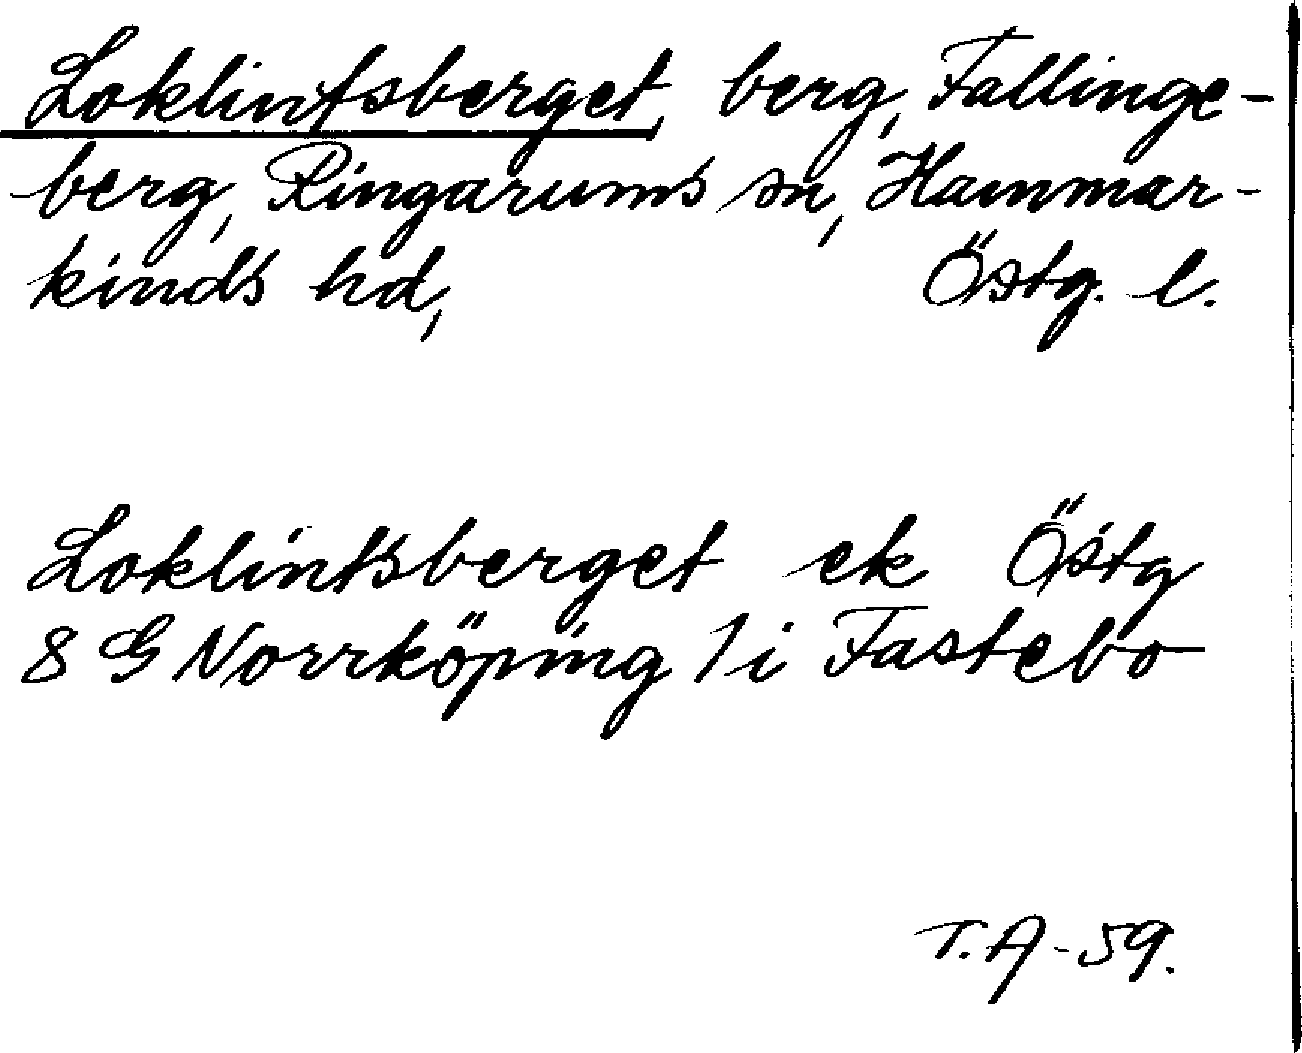 Loklintsberget, berg, Fallinge-
berg, Ringarums sn, Hammar-
kinds hd, Östg. l.
Loklintsberget ek Östg
8 G Norrköping 1 i Fastebo
T.A-59.